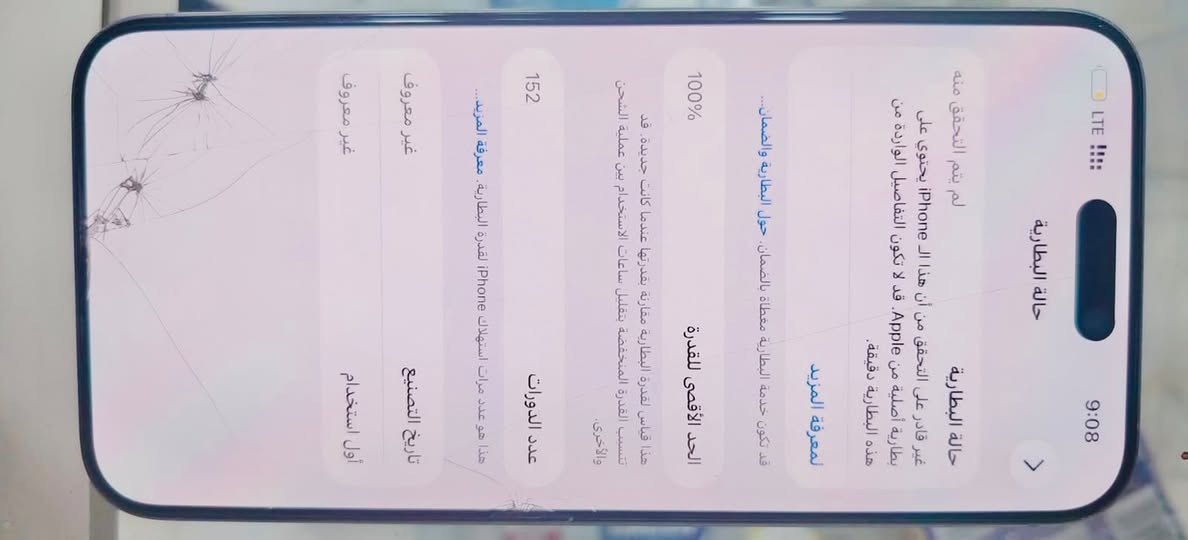 9:08
LTE
حالة البطارية
حالة البطارية لم يتم التحقق منه
غير قادر على التحقق من أن هذا الـ iPhone يحتوي على
بطارية أصلية من Apple. قد لا تكون التفاصيل الواردة من
هذه البطارية دقيقة.
لمعرفة المزيد
قد تكون خدمة البطارية مغطاة بالضمان. حول البطارية والضمان...
الحد الأقصى للقدرة 100%
هذا قياس لقدرة البطارية مقارنة بقدرتها عندما كانت جديدة. قد
تتسبب القدرة المنخفضة بتقليل ساعات الاستخدام بين عملية الشحن
والأخرى.
عدد الدورات 152
هذا هو عدد مرات استهلاك iPhone لقدرة البطارية. معرفة المزيد...
تاريخ التصنيع غير معروف
أول استخدام غير معروف